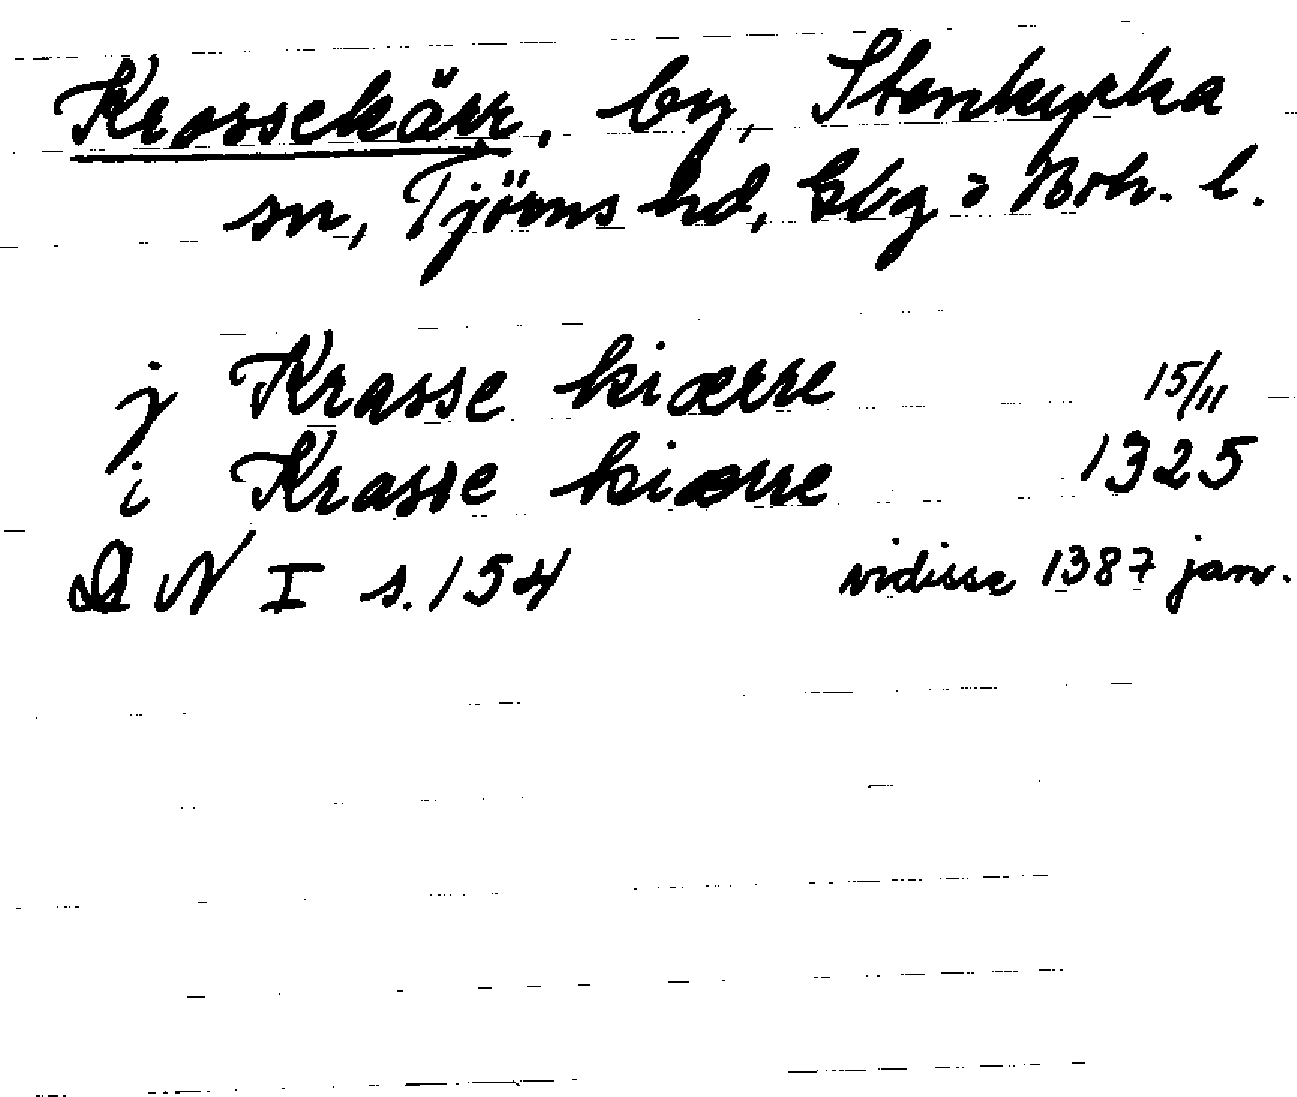 Krossekärr, by, Stenkyrka
sn, Tjörns hd, Gbg o Boh. l.
j Krasse kiærre 15/11
i Krasse kiærre 1325
DN I s. 154 vidisse 1387 jan.